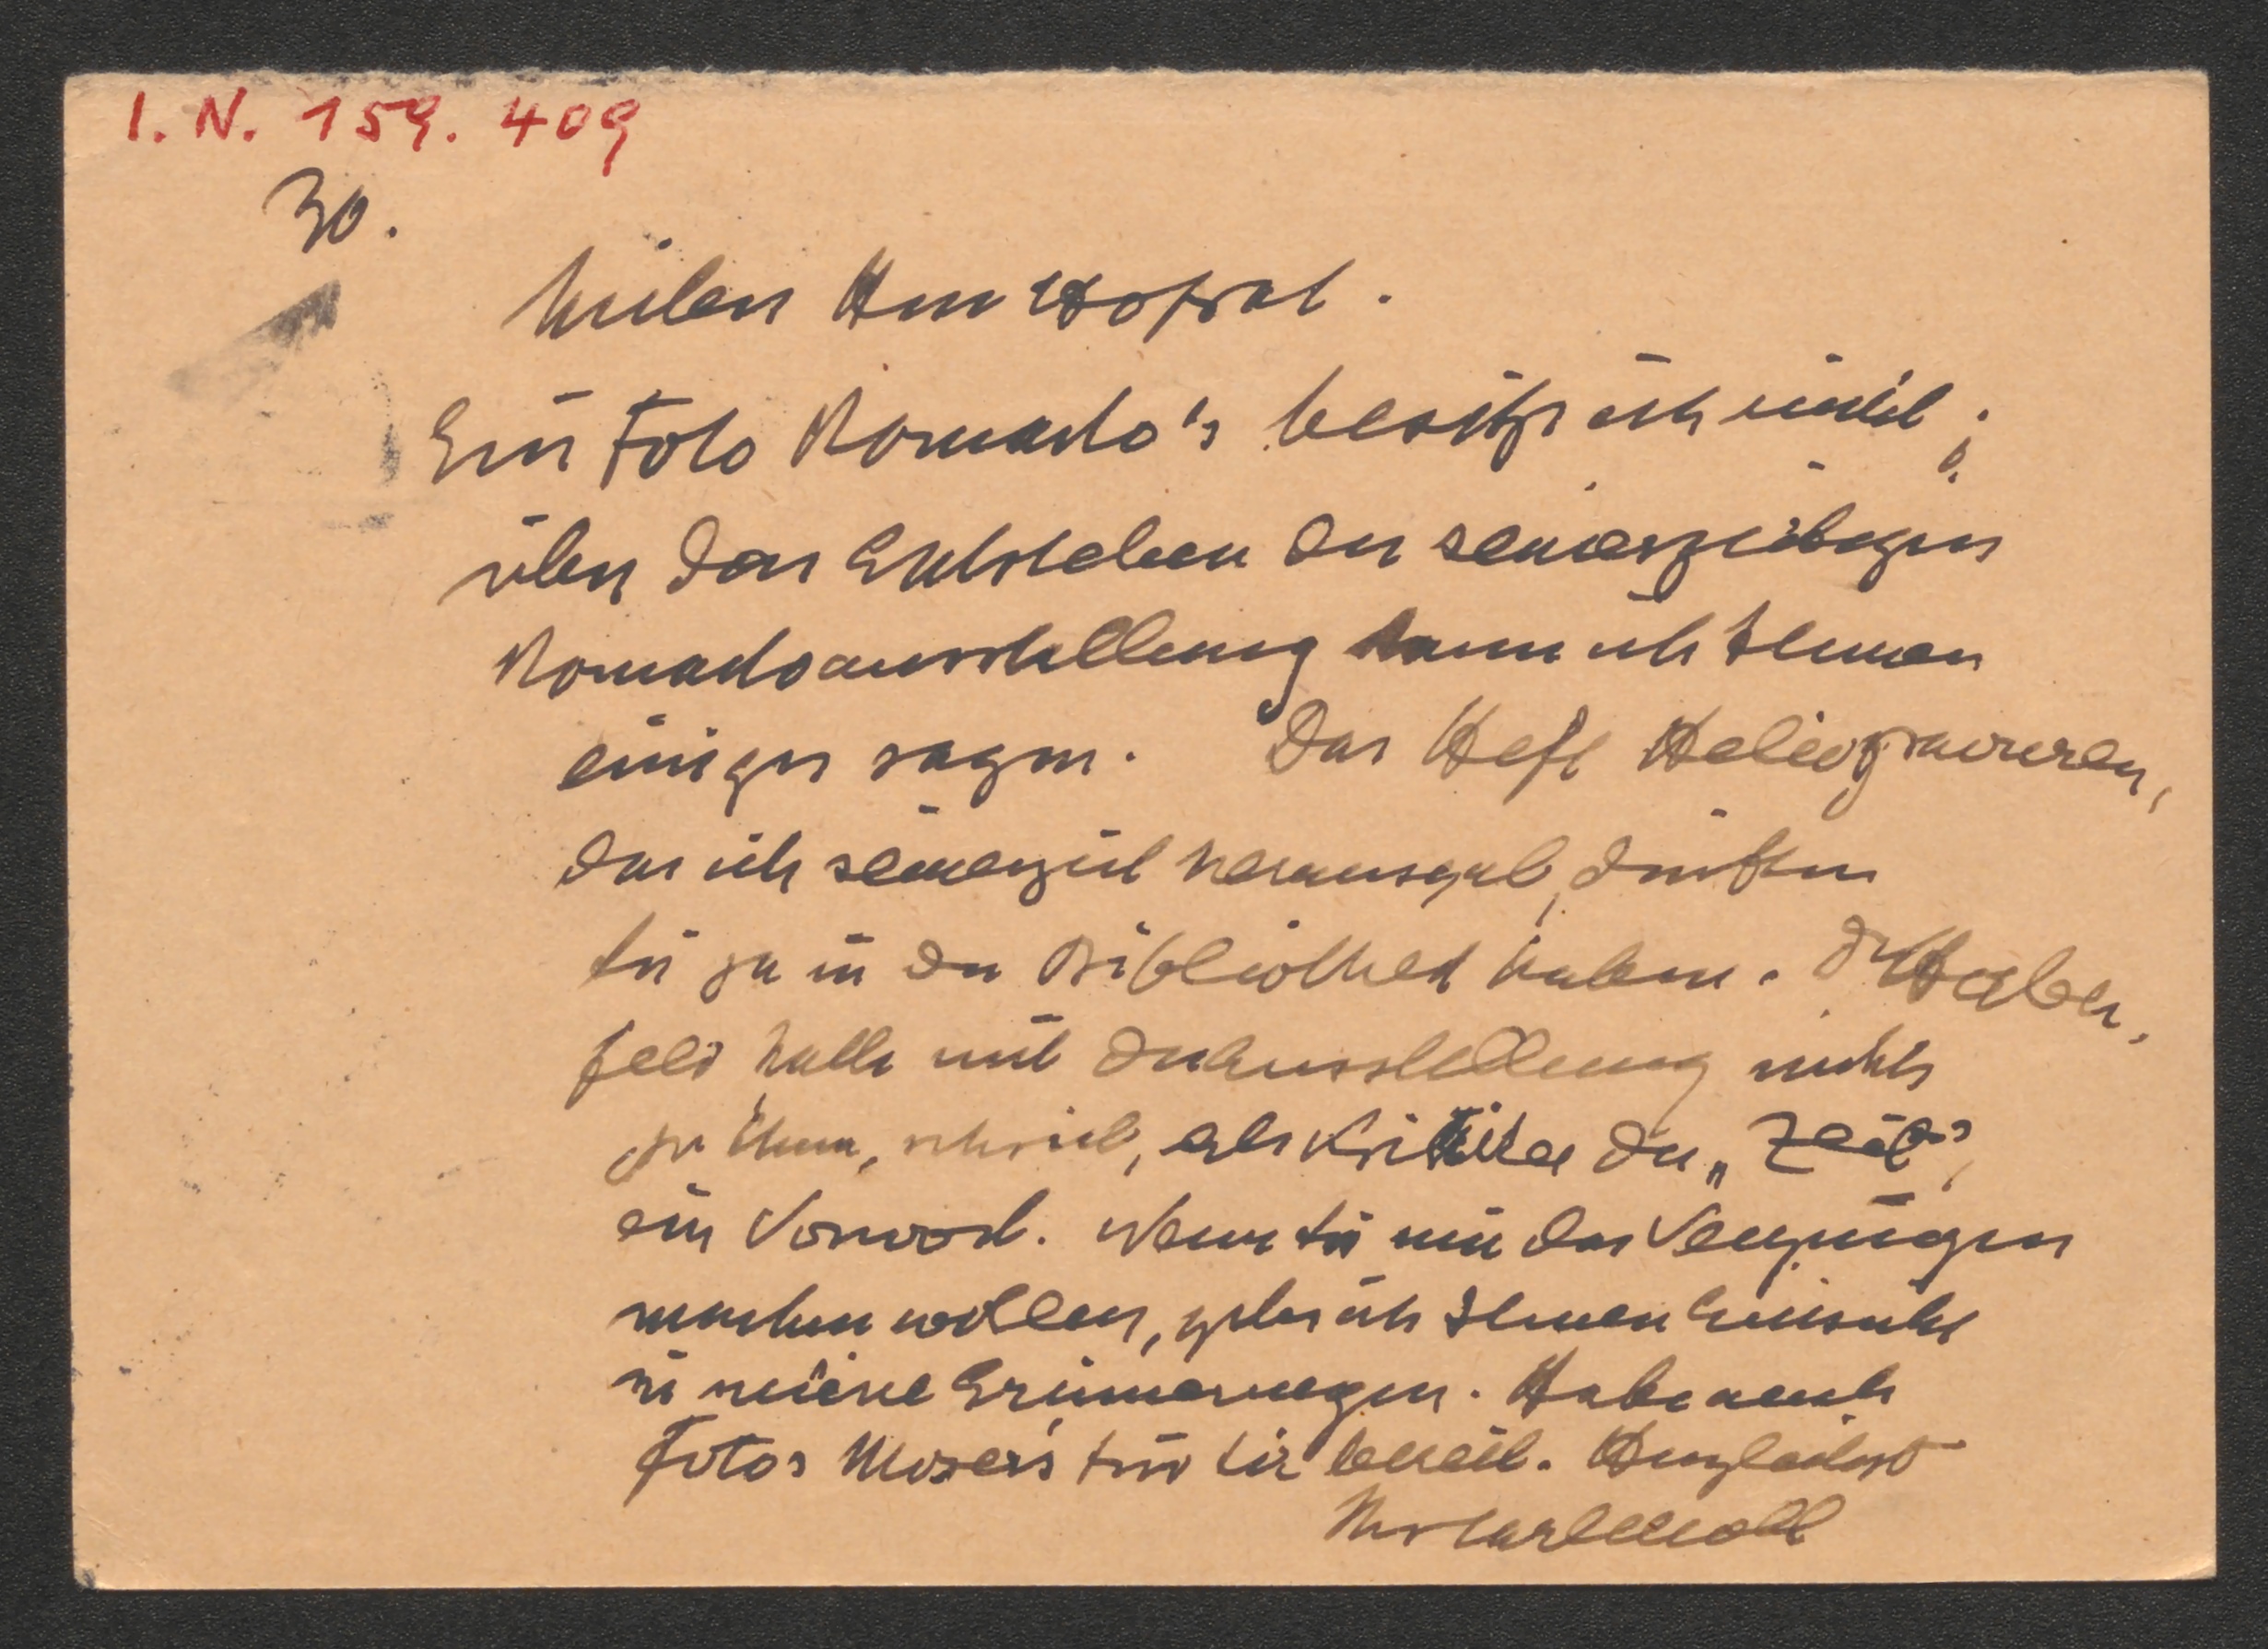 I. N. 159. 409
30.
lieber Herr Hofrat.
Ein Foto Romako's besitze ich nicht;
über das Entstehen der seinerzeitigen
Romakoausstellung kann ich Ihnen
einiges sagen. Das Heft Heliogravuren,
das ich seinerzeit herausgab, dürften
Sie ja in der Bibliothek haben. Dr Haber-
feld hatte mit der Ausstellung nichts
zu thun, schrieb, als Kritiker der „Zeit",
ein Vorwort. Wenn Sie mir das Vergnügen
machen wollen, gebe ich Ihnen Einsicht
in meine Erinnerungen. Habe auch
Fotos Moser's für Sie bereit. Herzlichst
Ihr Carl Moll